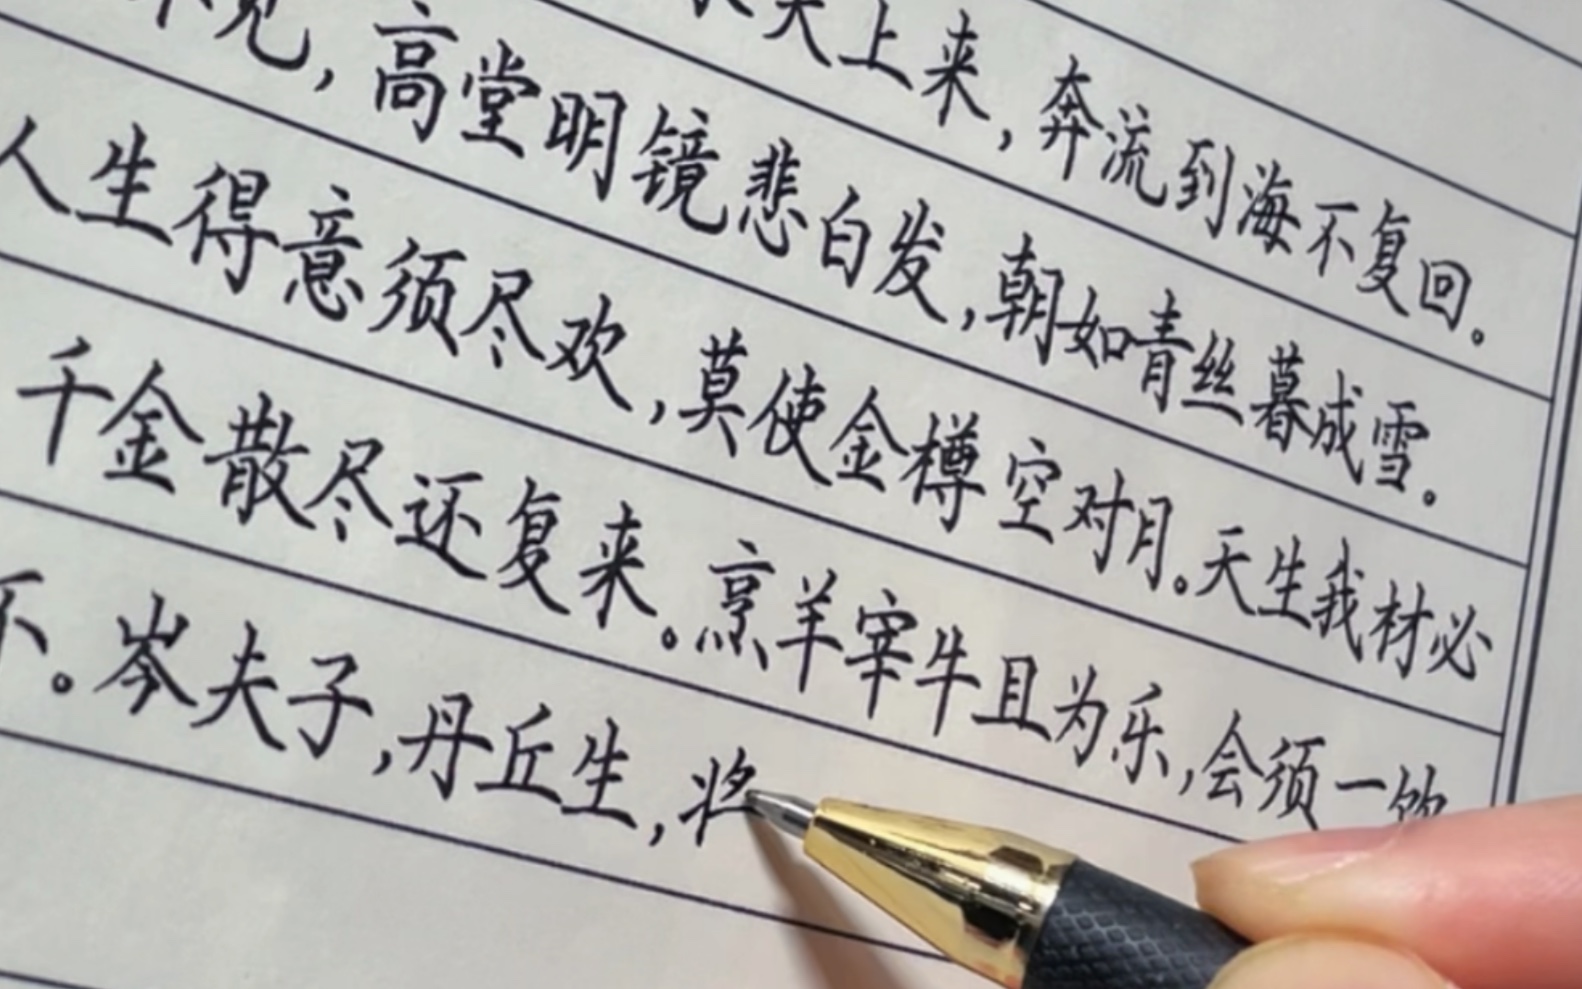 天上来，奔流到海不复回。
不见，高堂明镜悲白发，朝如青丝暮成雪。
人生得意须尽欢，莫使金樽空对月。天生我材必
千金散尽还复来。烹羊宰牛且为乐，会须一饮
不。岑夫子，丹丘生，将